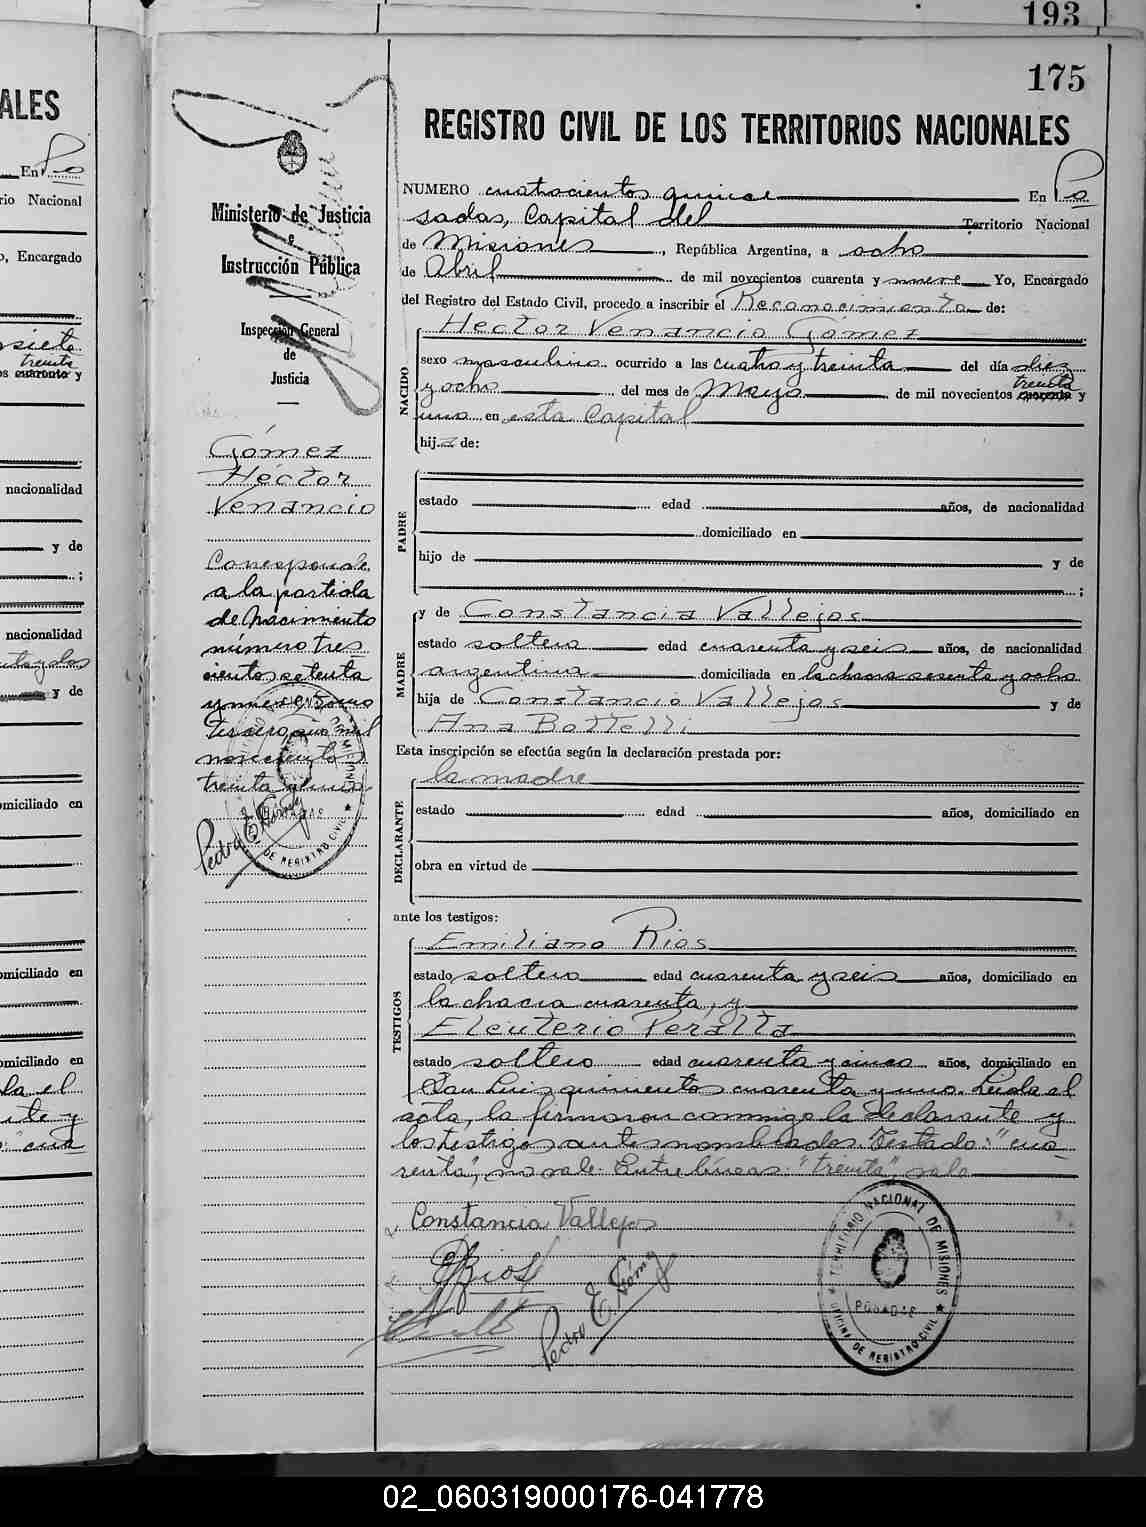 193
ALES
En Po
rio Nacional
o, Encargado
sieta
treinta
os cuarenta y
nacionalidad
y de
;
nacionalidad
y de
omiciliado en
omiciliado en
omiciliado en
la el
te y
175
REGISTRO CIVIL DE LOS TERRITORIOS NACIONALES
Ministerio de Justicia
e
Instrucción Pública
Inspección General
de
Justicia
Gómez
Héctor
Venancio
Corresponde
a la partida
de Nacimiento
número tres
cientos setenta
y nueve, tomo
tercero año mil
novecientos
treinta y uno
Pedro E. Gómez
DE REGISTRO CIVIL
NUMERO cuatrocientos quince En Po
sadas, Capital del Territorio Nacional
de Misiones, República Argentina, a ocho
de Abril de mil novecientos cuarenta y nueve Yo, Encargado
del Registro del Estado Civil, procedo a inscribir el Reconocimiento de:
NACIDO
Hector Venancio Gomez
sexo masculino ocurrido a las cuatro y treinta del día diez
y ocho del mes de Mayo de mil novecientos cuarenta treinta y
uno en esta Capital
hij de:
PADRE
estado edad años, de nacionalidad
domiciliado en
hijo de y de
;
MADRE
y de Constancia Vallejos
estado soltera edad cuarenta y seis años, de nacionalidad
argentina domiciliada en la chacra sesenta y ocho
hija de Constancio Vallejos y de
Ana Bottelli
Esta inscripción se efectúa según la declaración prestada por:
DECLARANTE
la madre
estado edad años, domiciliado en
obra en virtud de
ante los testigos:
TESTIGOS
Emiliano Rios
estado soltero edad cuarenta y seis años, domiciliado en
la chacra cuarenta, y
Eleuterio Peralta
estado soltero edad cuarenta y cinco años, domiciliado en
San Luis quinientos cuarenta y uno. Leída el
acta, la firmaron conmigo la declarante y
los testigos antes nombrados. Testado: "cua-
renta", no vale. Entre líneas: "treinta", vale
Constancia Vallejos
E Rios
Pedro E. Gómez
TERRITORIO NACIONAL DE MISIONES
POSADAS
OFICINA DE REGISTRO CIVIL
02_060319000176-041778